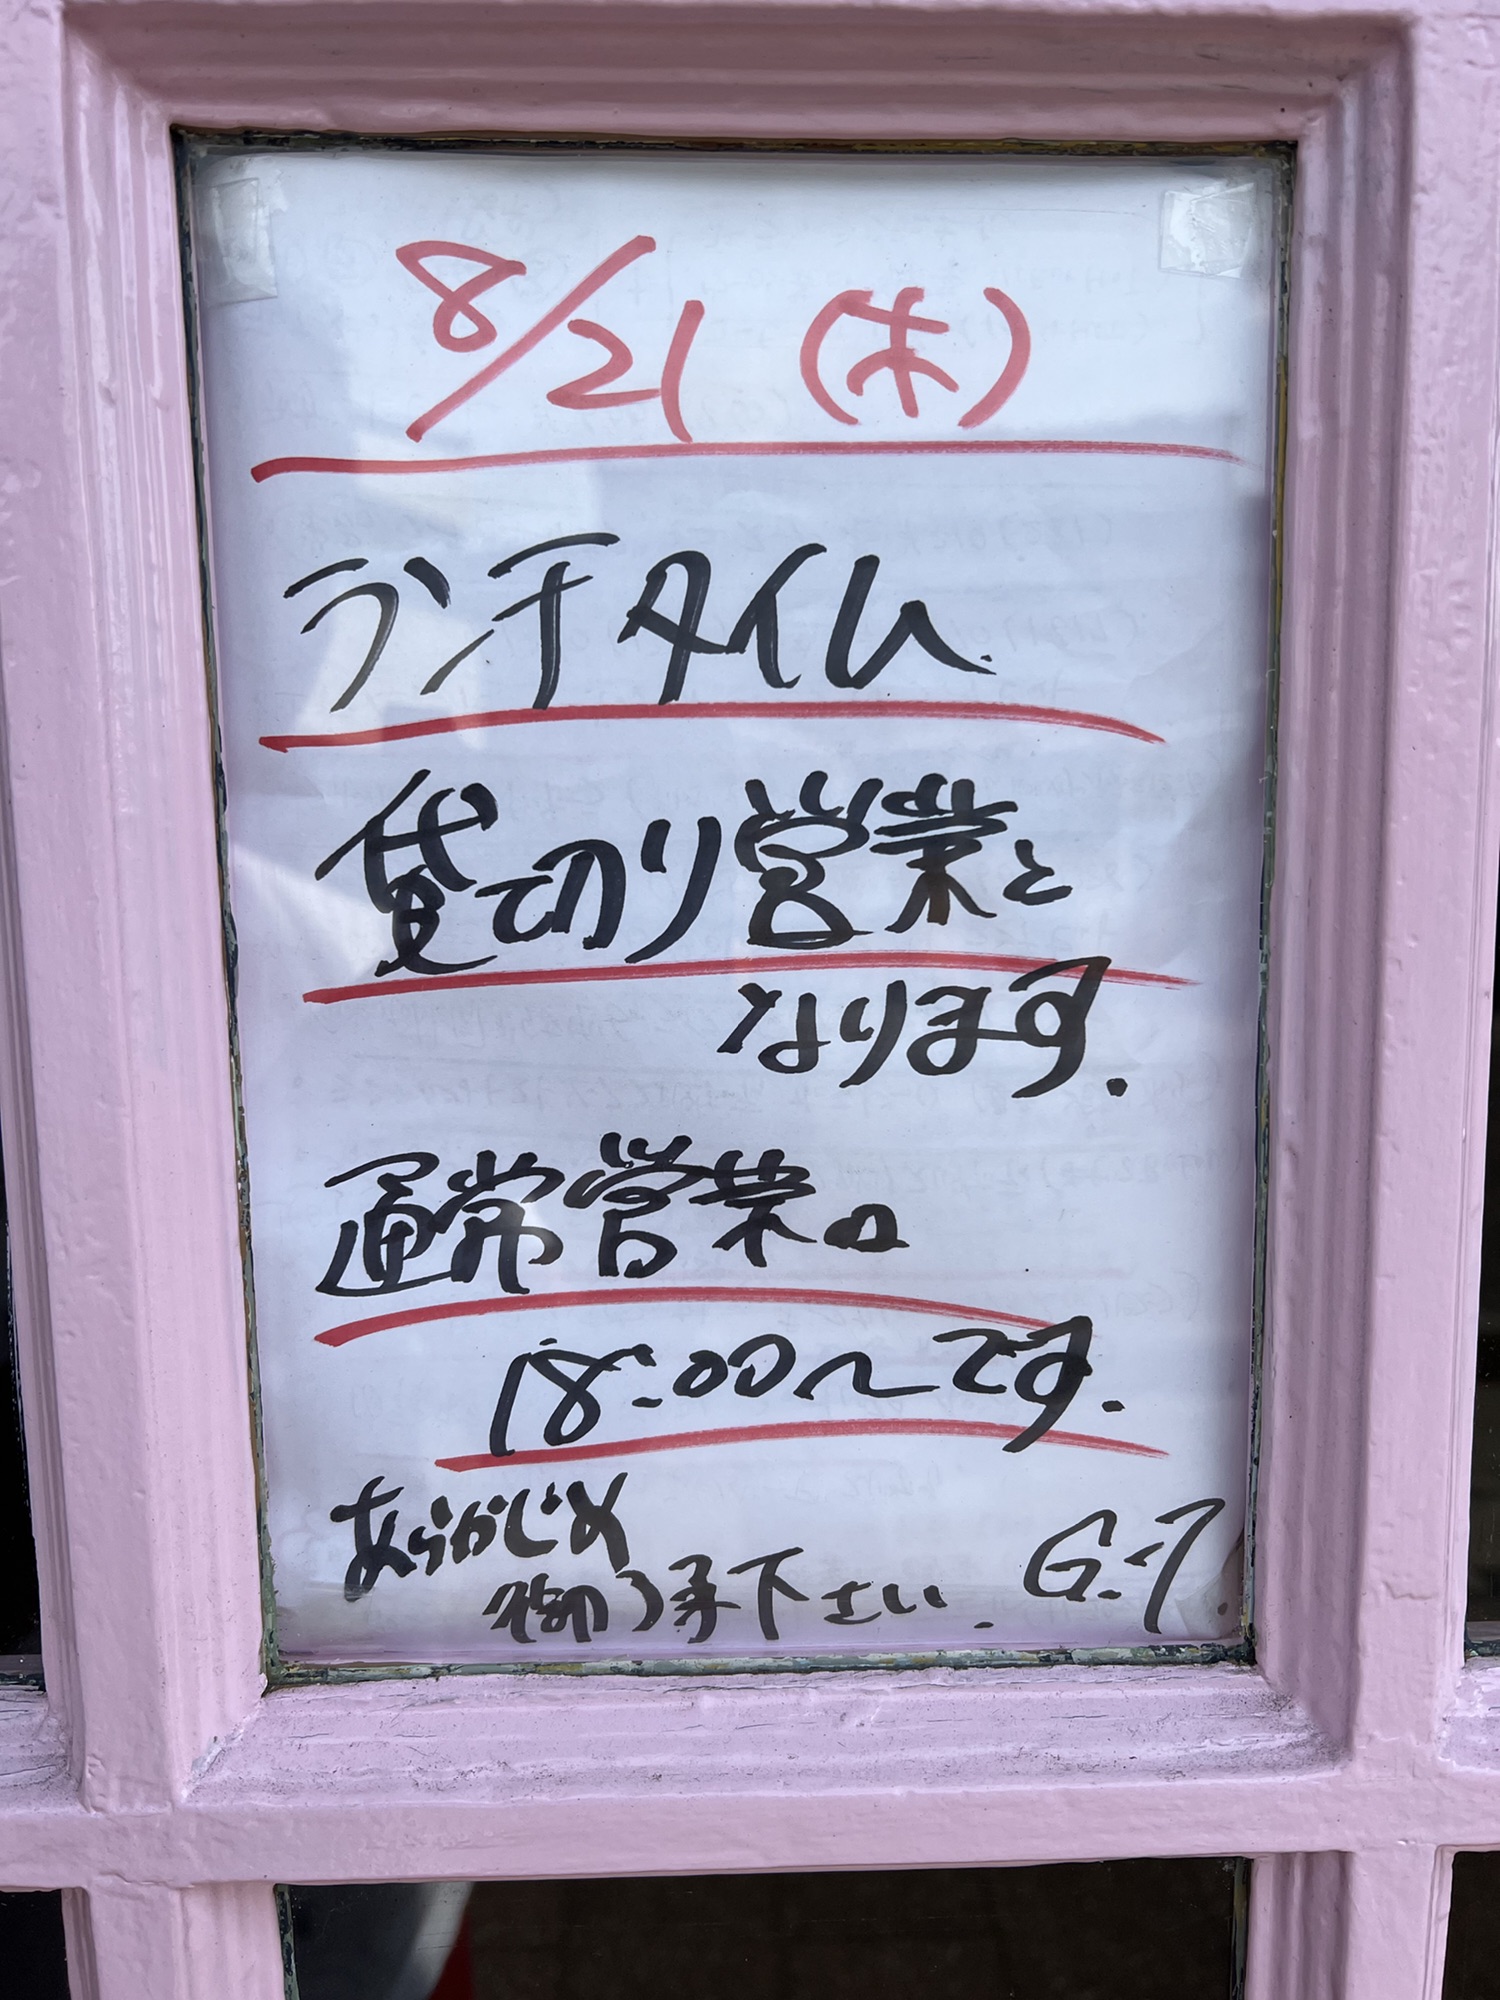 8/21 (木)
ランチタイム
貸切り営業と
なります.
通常営業は
18:00〜です.
あらかじめ
御了承下さい.
G-7